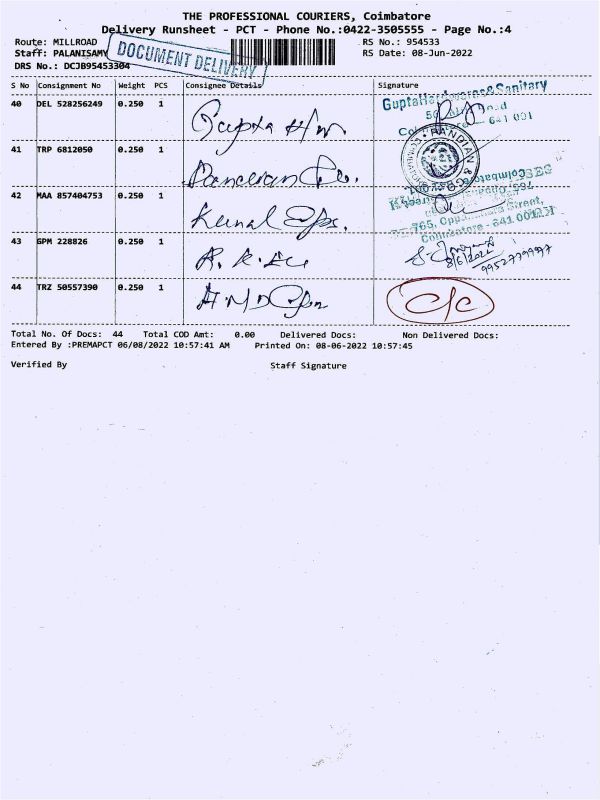 THE PROFESSIONAL COURIERS, Coimbatore
Delivery Runsheet - PCT - Phone No.:0422-3505555 - Page No.:4
Route: MILLROAD
RS No.: 954533
Staff: PALANISAMY
DOCUMENT DELIVERY
RS Date: 08-Jun-2022
DRS No.: DCJB95453304
S No Consignment No Weight PCS Consignee Details Signature
40 DEL 528256249 0.250 1 Gupta H/w. Gupta Hardwares & Sanitary
641 001
41 TRP 6812050 0.250 1 PANDIAN &
42 MAA 857404753 0.250 1 Kunal
765, Oppanakara Street,
Coimbatore - 641 001
43 GPM 228826 0.250 1 R. K.
8/6/2022
44 TRZ 50557390 0.250 1 c/c
Total No. Of Docs: 44 Total COD Amt: 0.00 Delivered Docs: Non Delivered Docs:
Entered By :PREMAPCT 06/08/2022 10:57:41 AM Printed On: 08-06-2022 10:57:45
Verified By Staff Signature